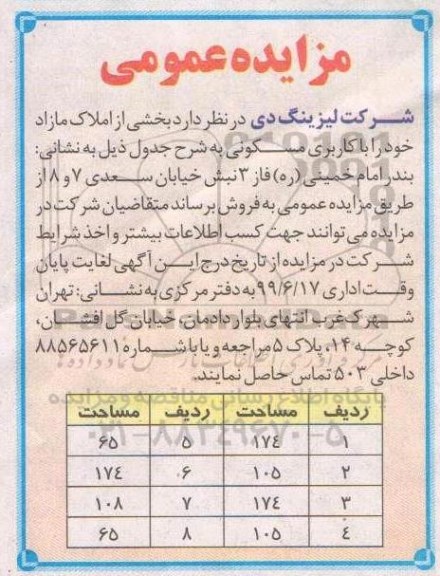 مزایده عمومی
شرکت لیزینگ دی در نظر دارد بخشی از املاک مازاد
خود را با کاربری مسکونی به شرح جدول ذیل به نشانی:
بندر امام خمینی (ره) فاز ۳ نبش خیابان سعدی ۷ و ۸ از
طریق مزایده عمومی به فروش برساند متقاضیان شرکت در
مزایده می توانند جهت کسب اطلاعات بیشتر و اخذ شرایط
شرکت در مزایده از تاریخ درج این آگهی لغایت پایان
وقت اداری ۹۹/۶/۱۷ به دفتر مرکزی به نشانی: تهران
شهرک غرب، انتهای بلوار دادمان، خیابان گل افشان،
کوچه ۱۴، پلاک ۵ مراجعه و یا با شماره ۸۸۵۶۵۶۱۱
داخلی ۵۰۳ تماس حاصل نمایند.
پایگاه اطلاع رسانی مناقصه و مزایده
ردیف مساحت ردیف مساحت
۰۲۱-۸۸۳۴۹۶۷۰-۵
۱ ۱۷٤ ۵ ۶۵
۲ ۱۰۵ ۶ ۱۷٤
۳ ۱۷٤ ۷ ۱۰۸
٤ ۱۰۵ ۸ ۶۵